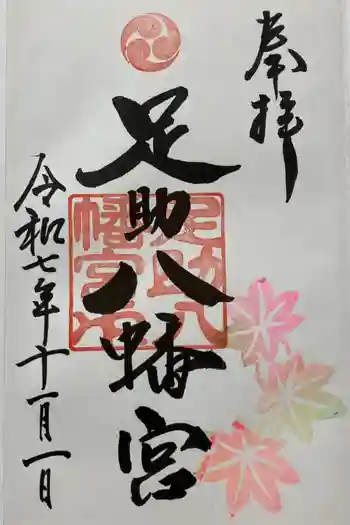 奉拝
足助八幡宮
令和七年十一月一日
足助八幡宮之印